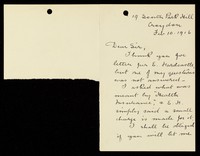 19 South Park Hill
Croydon
Feb 10. 1912
Dear Sir,
I thank you for
letter per
but one of my questions
was not answered.
I asked what was
meant by "Health
Insurance",
simply said a small
charge is made for it
I shall be obliged
if you will let me